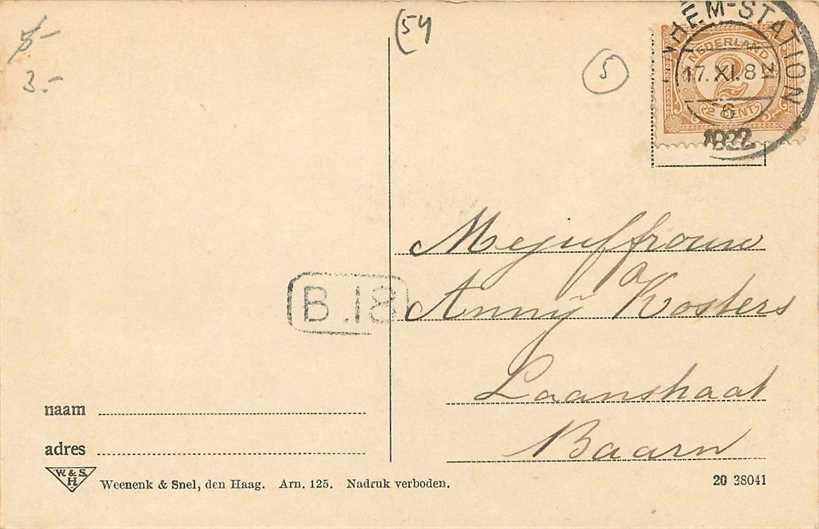 5-
3.-
(54
5
NHEM-STATION
NEDERLAND
17. XI. 8
2
6
CENT
1922
Mejuffrouw
a
Annÿ Kosters
B.18
Laanstraat
Baarn
naam
adres
W.&S.
H
Weenenk & Snel, den Haag. Arn. 125. Nadruk verboden.
20 38041